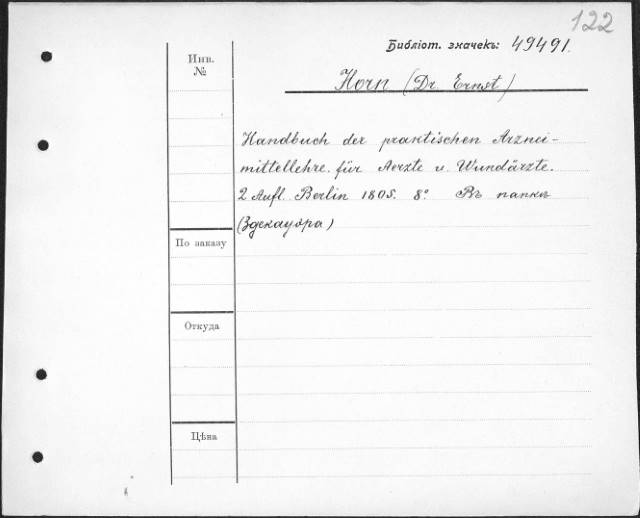 122
Библіот. значекъ: 49491.
Инв.
№
Horn (Dr. Ernst)
Handbuch der praktischen Arznei-
mittellehre. für Aerzte u. Wundärzte.
2 Aufl. Berlin 1805. 8º. Въ папкѣ
(Здекауэра)
По заказу
Откуда
Цѣна